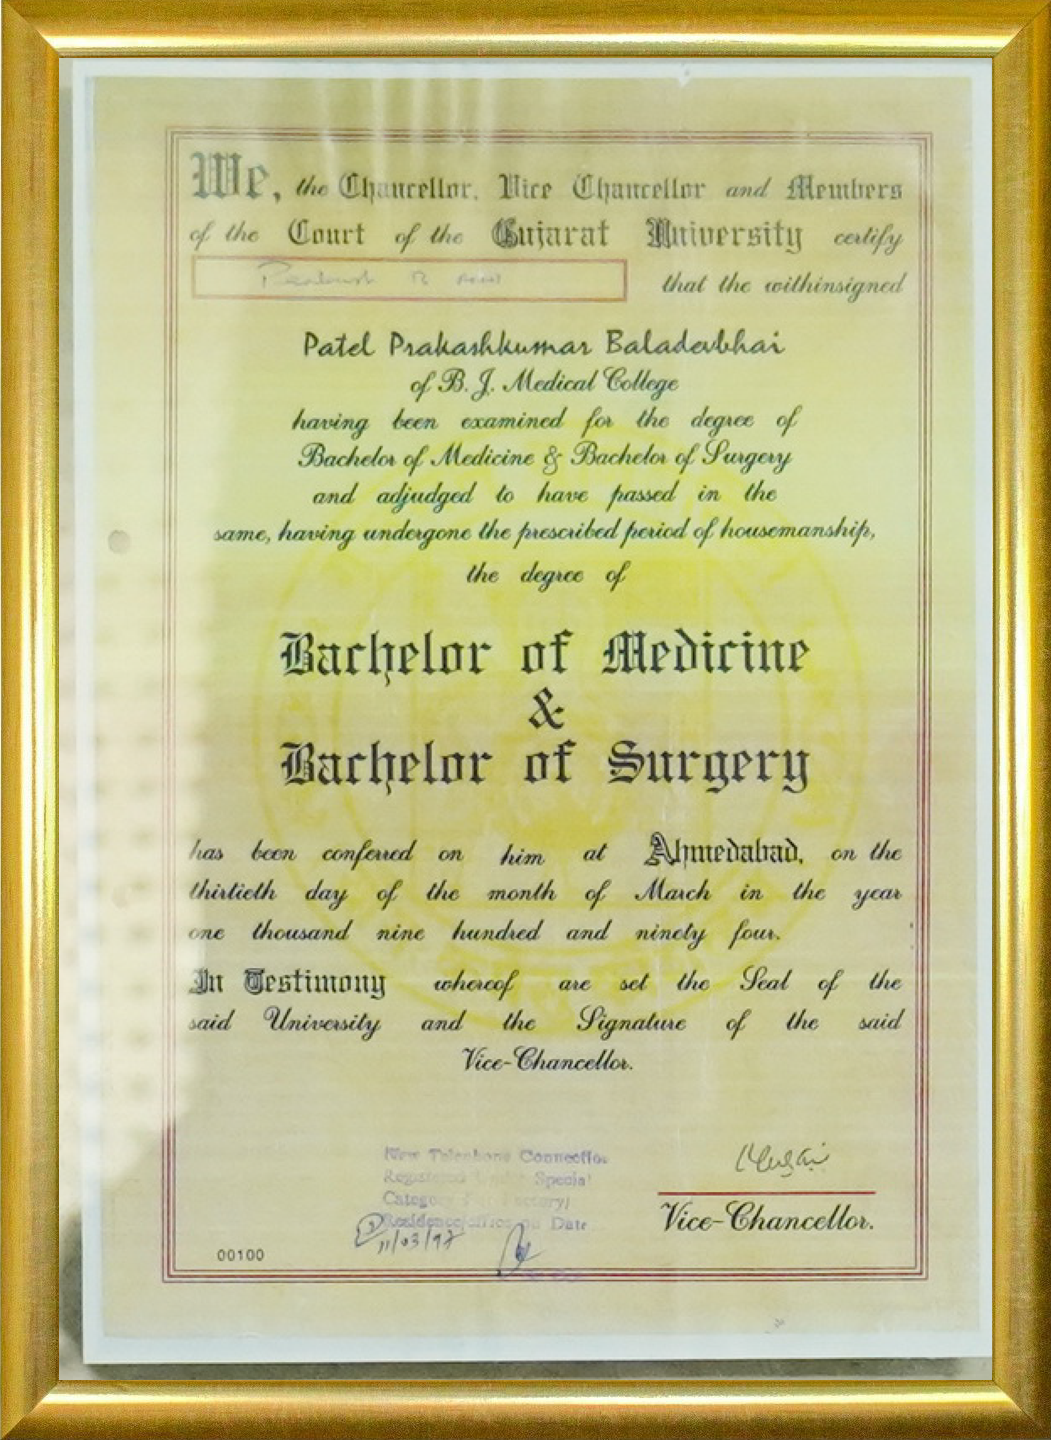 We, the Chancellor, Vice Chancellor and Members
of the Court of the Gujarat University certify
that the withinsigned
Patel Prakashkumar Baladevbhai
of B. J. Medical College
having been examined for the degree of
Bachelor of Medicine & Bachelor of Surgery
and adjudged to have passed in the
same, having undergone the prescribed period of housemanship,
the degree of
Bachelor of Medicine
&
Bachelor of Surgery
has been conferred on him at Ahmedabad, on the
thirtieth day of the month of March in the year
one thousand nine hundred and ninety four.
In Testimony whereof are set the Seal of the
said University and the Signature of the said
Vice-Chancellor.
New Telephone Connection
Registered Under Special
Category
Residence/office on Date
11/03/97
Vice-Chancellor.
00100